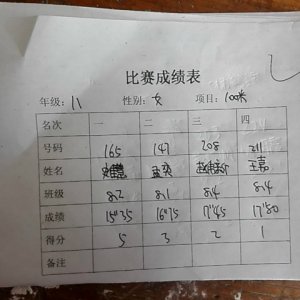 比赛成绩表
年级：八 性别：女 项目：100米
名次 一 二 三 四
号码 165 147 208 211
姓名 王嘉
班级 8.2 8.1 8.4 8.4
成绩 15"35 16"75 17"45 17"80
得分 5 3 2 1
备注